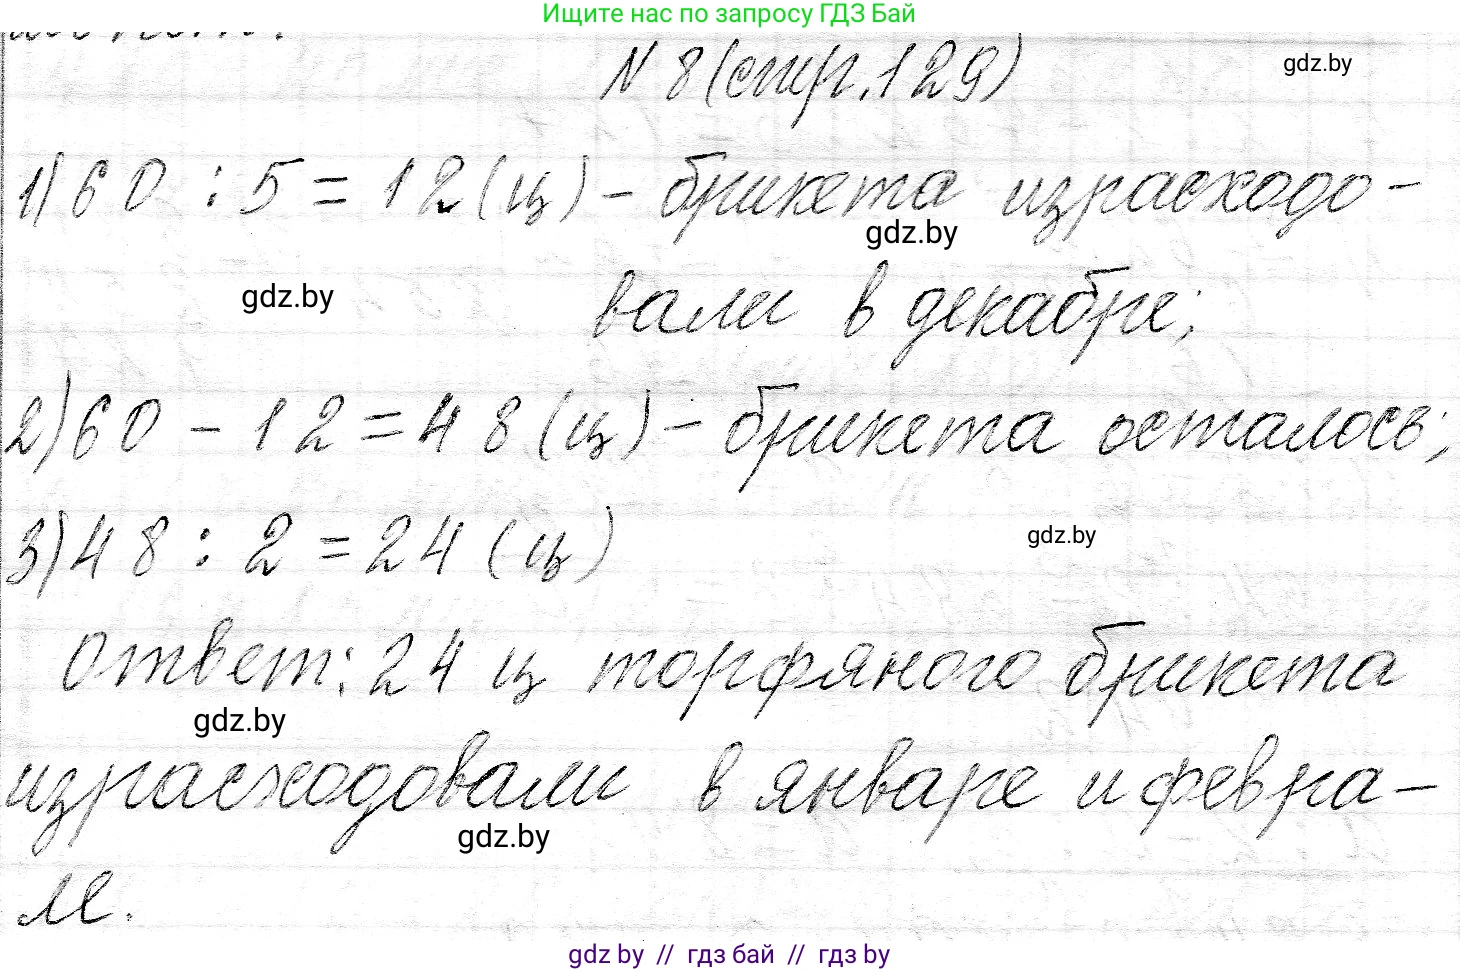 Ищите нас по запросу ГДЗ Бай
N 8 (стр. 129)
gdz.by
1) 60 : 5 = 12 (ц) - брикета израсходо-
gdz.by
gdz.by
вали в декабре;
2) 60 - 12 = 48 (ц) - брикета осталось;
3) 48 : 2 = 24 (ц)
gdz.by
Ответ: 24 ц торфяного брикета
gdz.by
израсходовали в январе и февра-
gdz.by
ле.
gdz by // гдз бай // гдз by